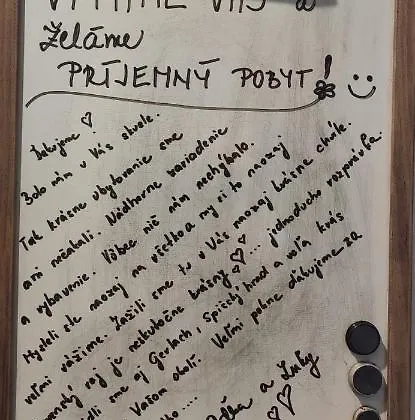 VÁS
Želáme
PRÍJEMNÝ POBYT!
Ďakujeme ♡
Bolo nám u Vás skvele.
Tak krásne ubytovanie sme
ani nečakali. Nádherne zariadenie
a vybavenie. Vôbec nič nám nechýbalo.
Mysleli ste naozaj na všetko a my si to naozaj
veľmi vážime. Zažili sme tu u Vás naozaj krásne chvíle.
raj je neskutočne krásny ♡... jednoducho rozprávka.
sme aj Gerlach, Spišský hrad a veľa krás
Vašom okolí. Veľmi pekne ďakujeme za
a Luky
♡♡